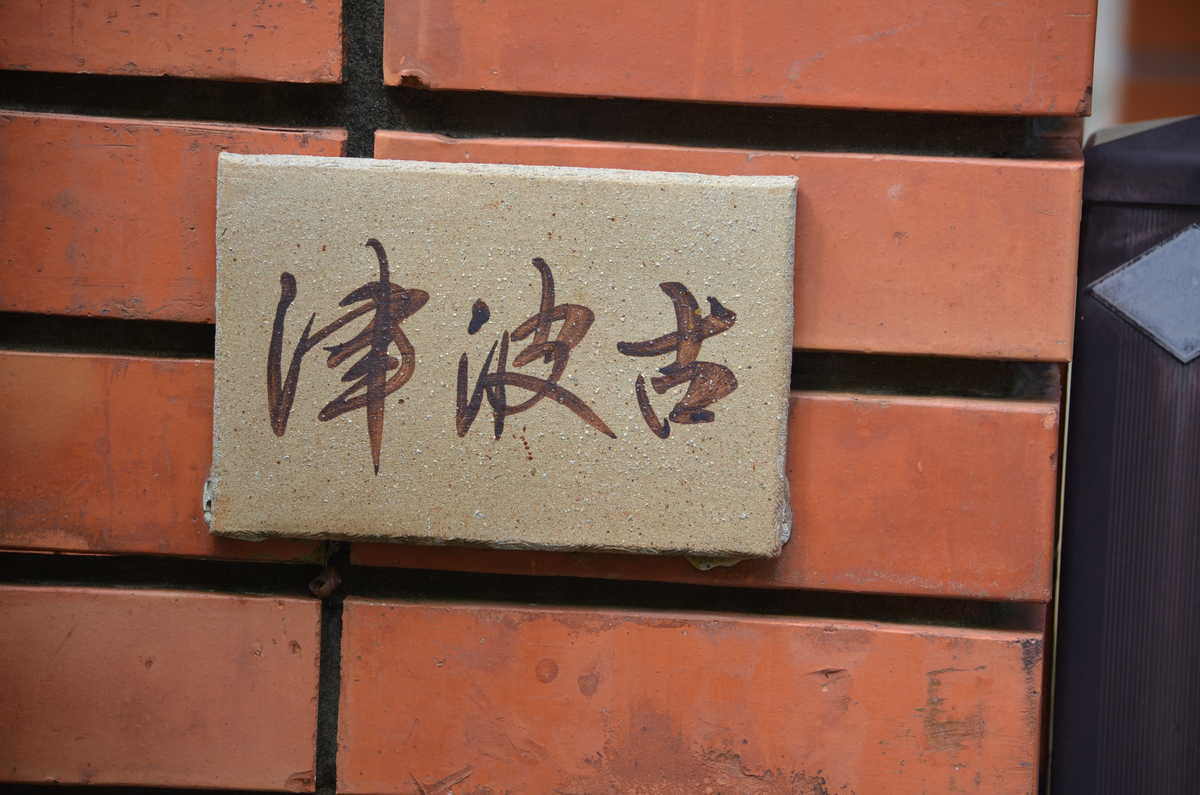 津波古